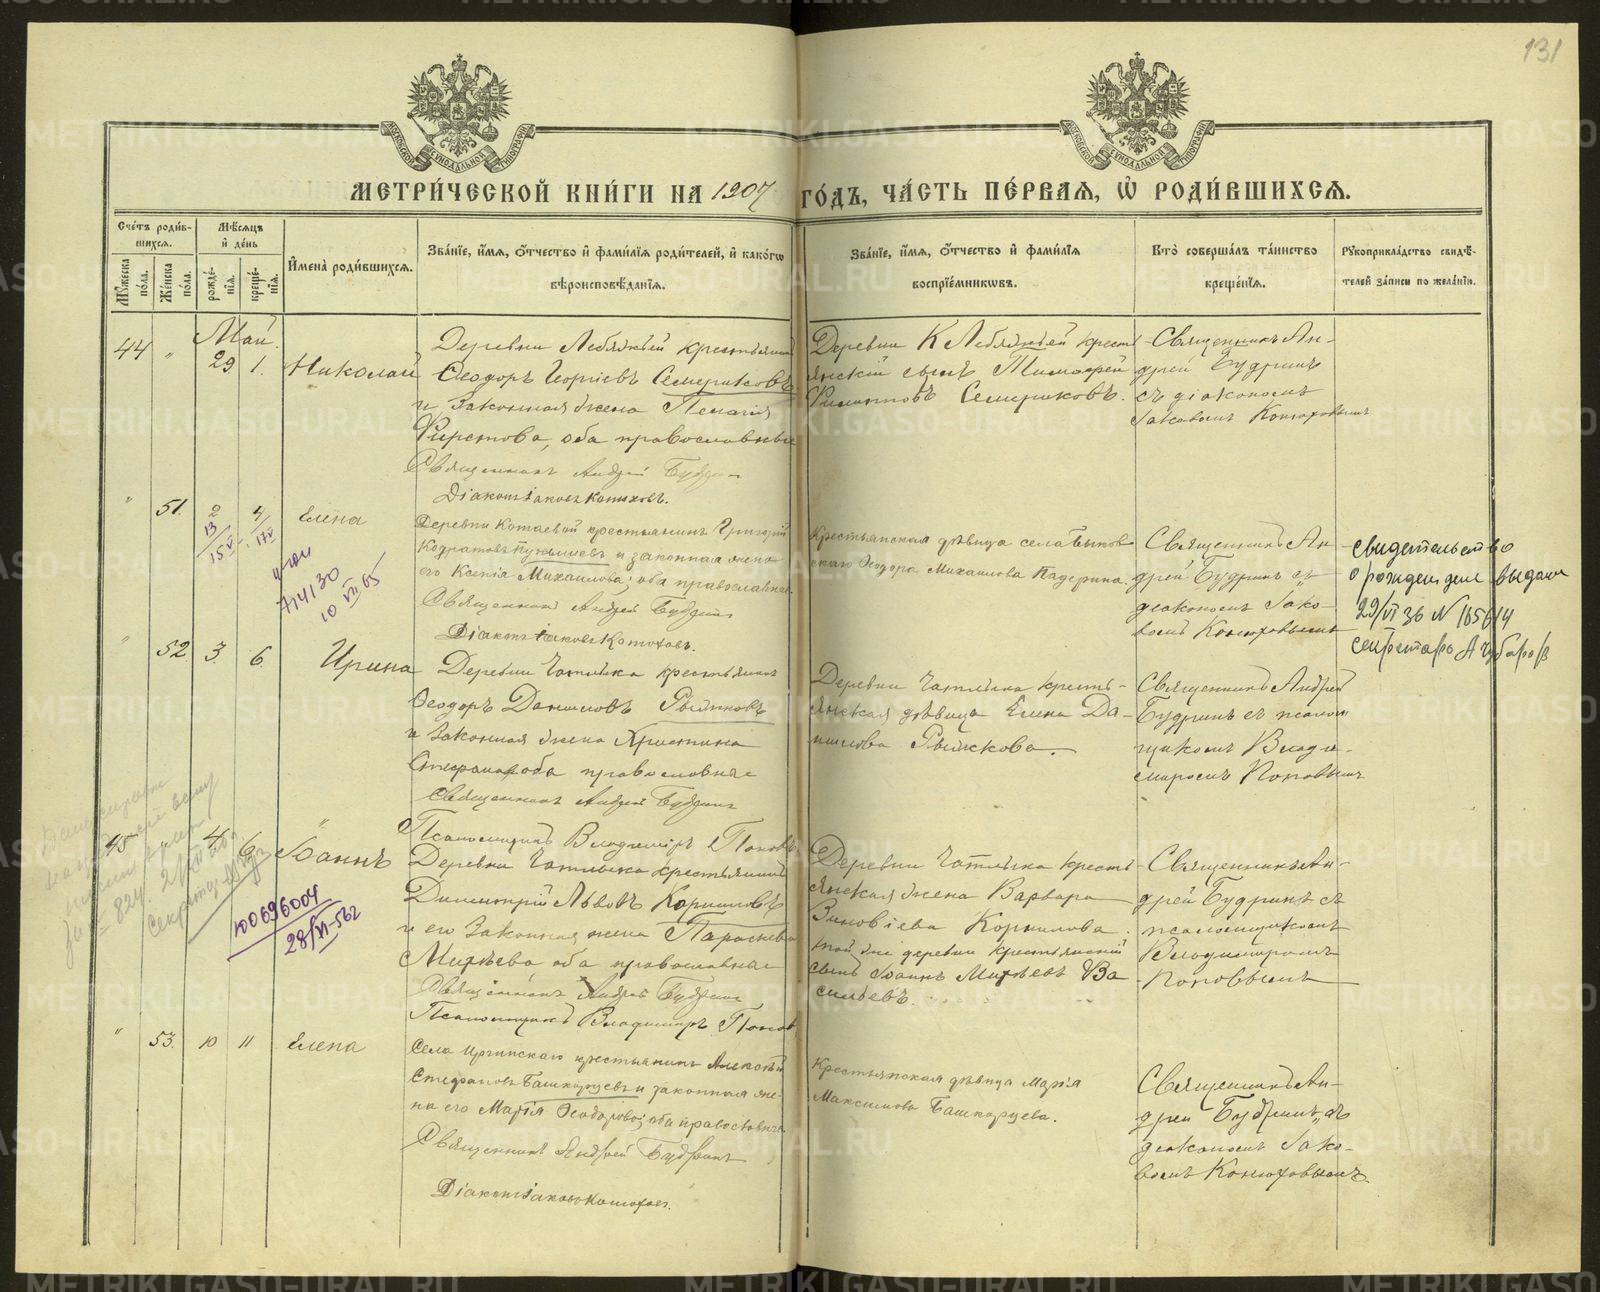 131
МЕТРИ́ЧЕСКОЙ КНИ́ГИ НА 1907 ГО́ДЪ, ЧА́СТЬ ПЕ́РВАЯ, Ѡ҆ РОДИ́ВШИХСЯ.
Сче́тъ роди́в-
шихся.
Мѣ́сяцъ
и҆ де́нь
Мꙋ́жеска
по́ла.
Же́нска
по́ла.
рожде́-
нїя.
креще́-
нїя.
И҆мена̀ роди́вшихся.
Зва́нїе, и҆́мя, ѻ҆́тчество и҆ фами́лїя роди́телей, и҆ како́гѡ
вѣроисповѣ́данїя.
Зва́нїе, и҆́мя, ѻ҆́тчество и҆ фами́лїя
воспрїе́мникѡвъ.
Кто̀ соверша́лъ та́инство
креще́нїя.
Рꙋкоприкла́дство свидѣ́-
телей за́писи по жела́нїю.
Май.
44 " 29 1. Николай
Деревни Лебяжьей крестьянинъ
Ѳеодоръ Георгіевъ Семериковъ
и законная жена Пелагія
Фирстова, оба православные
Священникъ Андрей Будринъ
Діаконъ Іаковъ Конюховъ.
Деревни К Лебяжьей кресть-
янскій сынъ Тимоѳей
Филипповъ Семериковъ.
Священникъ Ан-
дрей Будринъ
съ діакономъ
Іаковомъ Конюховымъ
" 51. 2 4 Елена
13/15 V 17 V
714130
10 VII 65
Деревни Котаевой крестьянинъ Григорій
Кодратовъ и законная жена
его Ксенія Михаилова, оба православные
Священникъ Андрей Будринъ
Діаконъ Іаковъ Конюховъ.
Крестьянская дѣвица села Быков
скаго Ѳеодора Михаилова Падерина.
Священникъ Ан
дрей Будринъ съ
діакономъ Іако-
вомъ Конюховымъ
свидетельство
о рождении выдано
29/VI 36 N 165614
секретарь
" 52 3. 6. Ирина
Деревни Чатлыка крестьянинъ
Ѳеодоръ Даниловъ Рычковъ
и законная жена Христина
Стефанова оба православные
Священникъ Андрей Будринъ
Псаломщикъ Владимиръ Поповъ
Деревни Чатлыка кресть-
янская дѣвица Елена Да-
нилова Рычкова.
Священникъ Андрей
Будринъ съ псалом
щикомъ Влади-
миромъ Поповымъ
45 " 4 6 Іоаннъ
824
секретарь
Ю0696004
28/VI-562
Деревни Чатлыка крестьянинъ
Димитрій Львовъ Корниловъ
и его законная жена Параскева
Матѳѣева оба православные
Священникъ Андрей Будринъ
Псаломщикъ Владимиръ Поповъ
Деревни Чатлыка кресть
янская жена Варвара
Зиновіева Корнилова.
той же деревни крестьянскій
сынъ Іоаннъ Матѳѣевъ Ва
сильевъ.
Священникъ Ан-
дрей Будринъ съ
псаломщикомъ
Владимиромъ
Поповымъ
" 53. 10 11 Елена
Села Иргинскаго крестьянинъ Алексѣй
Стефановъ Башкирцевъ и законная же-
на его Марія Ѳеодорова, оба православные
Священникъ Андрей Будринъ
Діаконъ Іаковъ Конюховъ.
Крестьянская дѣвица Марія
Максимова Башкирцева.
Священникъ Ан-
дрей Будринъ съ
діакономъ Іако-
вомъ Конюховымъ.
METRIKI.GASO-URAL.RU